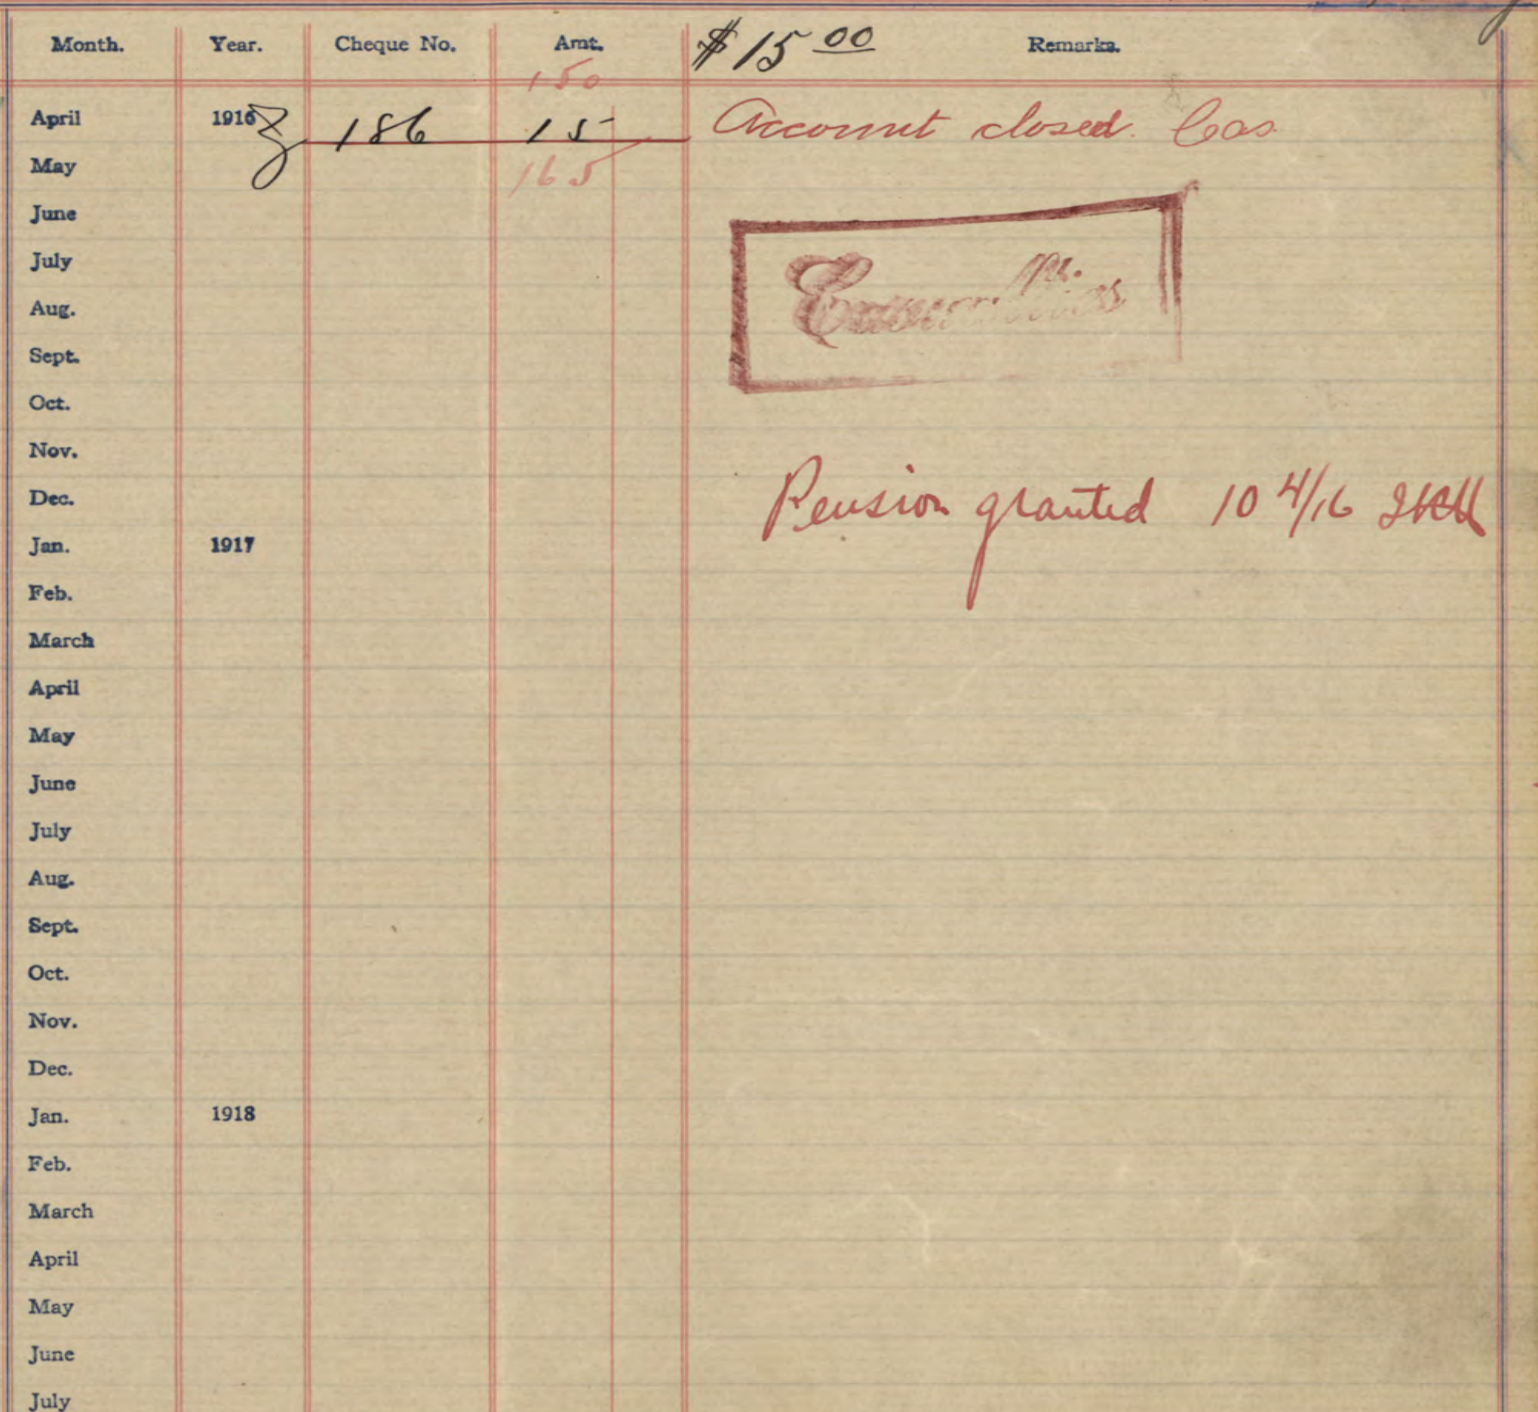 Month. Year. Cheque No. Amt. $15 00 Remarks.
150
April 1916 186 15 Account closed. Cas
May 165
June
July
Aug.
Sept.
Oct.
Nov.
Dec. Pension granted 10 4/16
Jan. 1917
Feb.
March
April
May
June
July
Aug.
Sept.
Oct.
Nov.
Dec.
Jan. 1918
Feb.
March
April
May
June
July